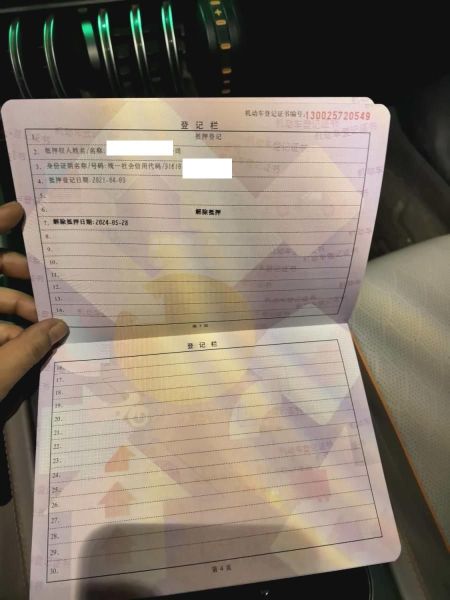 机动车登记证书编号:130025720549
登记栏
1. 抵押登记
2. 抵押权人姓名/名称:
3. 身份证明名称/号码:统一社会信用代码/91610
4. 抵押登记日期:2021-04-09
5.
6. 解除抵押
7. 解除抵押日期:2024-05-28
8.
9.
10.
11.
12.
13.
14.
第 3 页
登记栏
16.
17.
18.
19.
20.
21.
22.
23.
24.
25.
26.
27.
28.
29.
30.
第 4 页